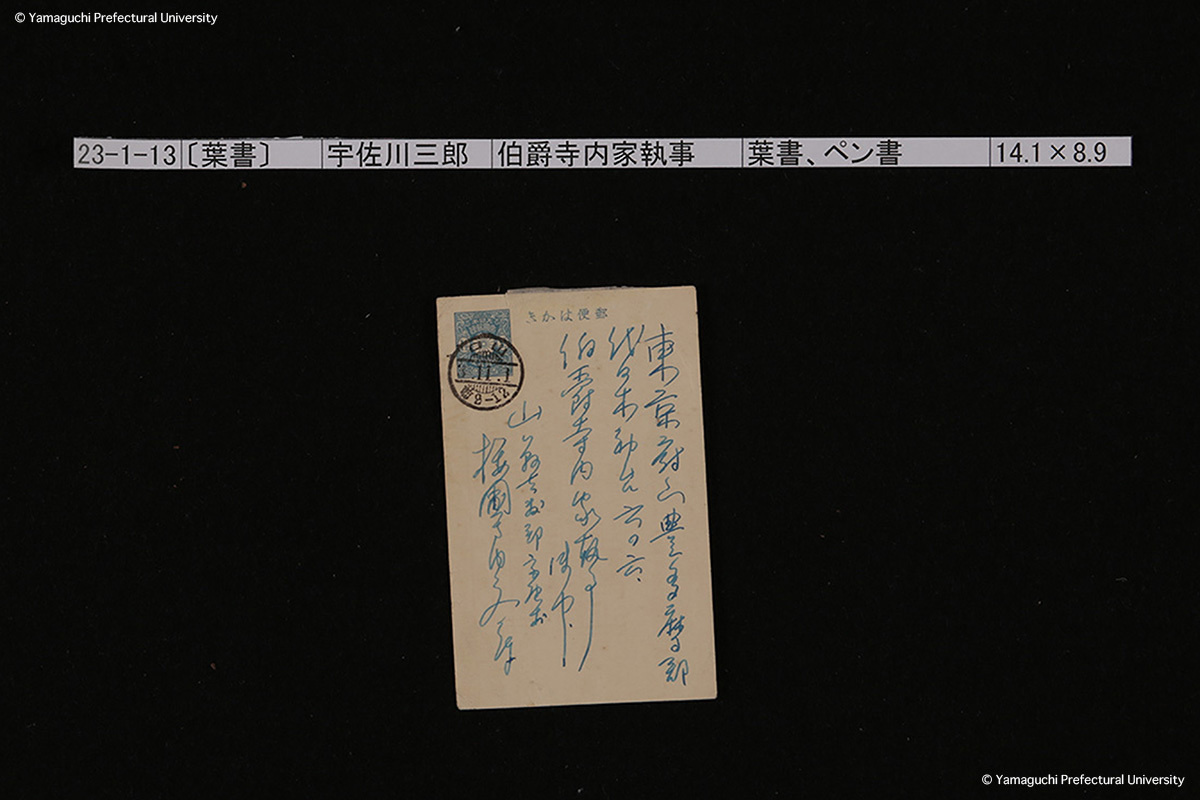 © Yamaguchi Prefectural University
23-1-13 〔葉書〕 宇佐川三郎 伯爵寺内家執事 葉書、ペン書 14.1×8.9
郵便はかき
東京府下豊多摩郡
代々木初台六〇六、
伯爵寺内家執事
御中
山
桜圃寺内文庫
11.1
8-12
© Yamaguchi Prefectural University